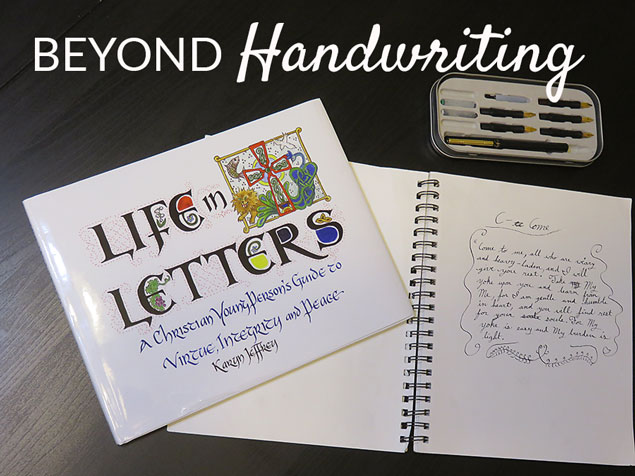 BEYOND Handwriting
LIFE in
LETTERS
A Christian Young Person's Guide to
Virtue, Integrity and Peace
Karyn Jeffrey
Come
Come to me, all who are weary
and heavy-laden, and I will
give you rest. Take My
yoke upon you and learn from
Me, for I am gentle and humble
in heart; and you will find rest
for your souls. For My
yoke is easy and My burden is
light.